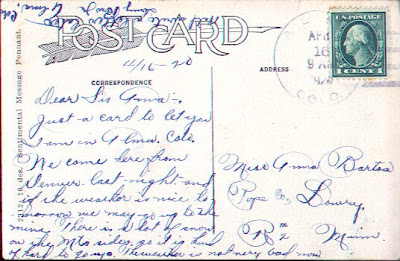 POST CARD
4/16-20
CORRESPONDENCE
ADDRESS
APR
16
9 AM
COLO.
1 CENT 1
Dear Sis Anna -
Just a card to let you
I am in Alma. Colo.
We came here from
Denver last night and
if the weather is nice to
morrow we may go up to the
mine. There is a lot of snow
on the Mts sides, so it is kind
of hard to go up. The weather is not very bad now
Miss Anna Bartos
Pope Co, Lowry,
R#2 Minn
2312 - 10 des. Sentimental Message Pennant.